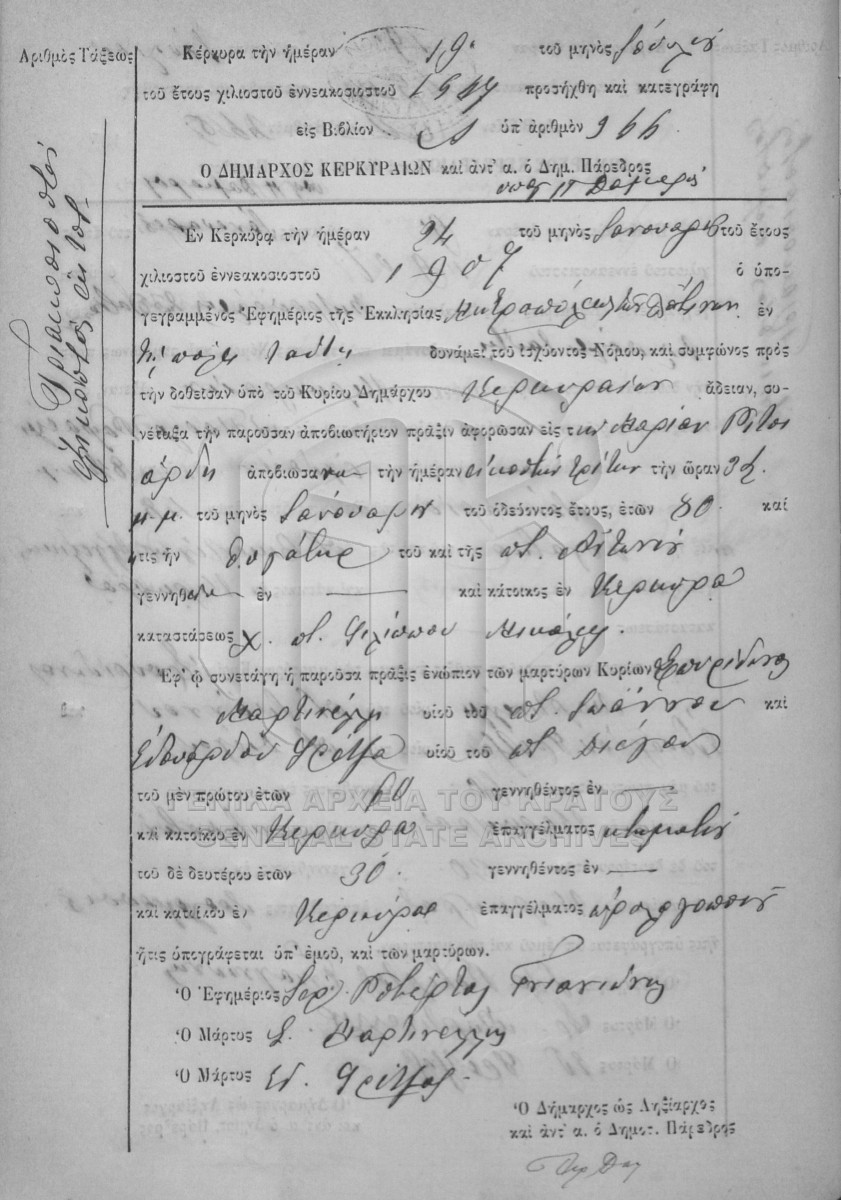 Ἀριθμὸς Τάξεως
Τριακοσιοστὸς
Κέρκυρα τὴν ἡμέραν 19 τοῦ μηνὸς
τοῦ ἔτους χιλιοστοῦ ἐννεακοσιοστοῦ προσήχθη καὶ κατεγράφη
εἰς Βιβλίον Α ὑπ' ἀριθμὸν 966
Ο ΔΗΜΑΡΧΟΣ ΚΕΡΚΥΡΑΙΩΝ καὶ ἀντ' α. ὁ Δημ. Πάρεδρος
Ἐν Κερκύρᾳ τὴν ἡμέραν 24 τοῦ μηνὸς Ἰανουαρίου τοῦ ἔτους
χιλιοστοῦ ἐννεακοσιοστοῦ 1907 ὁ ὑπο-
γεγραμμένος Ἐφημέριος τῆς Ἐκκλησίας Μητροπόλεως τῶν Λατίνων ἐν
τῇ πόλει ταύτῃ δυνάμει τοῦ ἰσχύοντος Νόμου, καὶ συμφώνως πρὸς
τὴν δοθεῖσαν ὑπὸ τοῦ Κυρίου Δημάρχου Κερκυραίων ἄδειαν, συ-
νέταξα τὴν παροῦσαν ἀποβιωτήριον πρᾶξιν ἀφορῶσαν εἰς τὴν Μαρίαν
ἀποβιώσασαν τὴν ἡμέραν εἰκοστὴν τρίτην τὴν ὥραν
μ.μ. τοῦ μηνὸς Ἰανουαρίου τοῦ ὁδεύοντος ἔτους, ἐτῶν 80 καί
τις ἦν θυγάτηρ τοῦ καὶ τῆς ποτ. Ἀντωνίου
γεννηθεῖσα ἐν — καὶ κάτοικος ἐν Κερκύρᾳ
καταστάσεως χ. ποτ. Φιλίππου
Ἐφ' ᾧ συνετάγη ἡ παροῦσα πρᾶξις ἐνώπιον τῶν μαρτύρων Κυρίων Σπυρίδωνος
Μαρτινέλλη υἱοῦ τοῦ ποτ. Ἰωάννου καὶ
Ἐδουάρδου Φρίτζα υἱοῦ τοῦ ποτ.
τοῦ μὲν πρώτου ἐτῶν 60 γεννηθέντος ἐν —
καὶ κατοίκου ἐν Κερκύρᾳ ἐπαγγέλματος κτηματίου
τοῦ δὲ δευτέρου ἐτῶν 30 γεννηθέντος ἐν —
καὶ κατοίκου ἐν Κερκύρᾳ ἐπαγγέλματος ὡρολογοποιοῦ
ἥτις ὑπογράφεται ὑπ' ἐμοῦ, καὶ τῶν μαρτύρων.
Ὁ Ἐφημέριος Ἱερ. Ροβέρτος
Ὁ Μάρτυς Σ. Μαρτινέλλης
Ὁ Μάρτυς Ἐδ. Φρίτζας
Ὁ Δήμαρχος ὡς Ληξίαρχος
καὶ ἀντ' α. ὁ Δημοτ. Πάρεδρος
ΓΕΝΙΚΑ ΑΡΧΕΙΑ ΤΟΥ ΚΡΑΤΟΥΣ
GENERAL STATE ARCHIVES